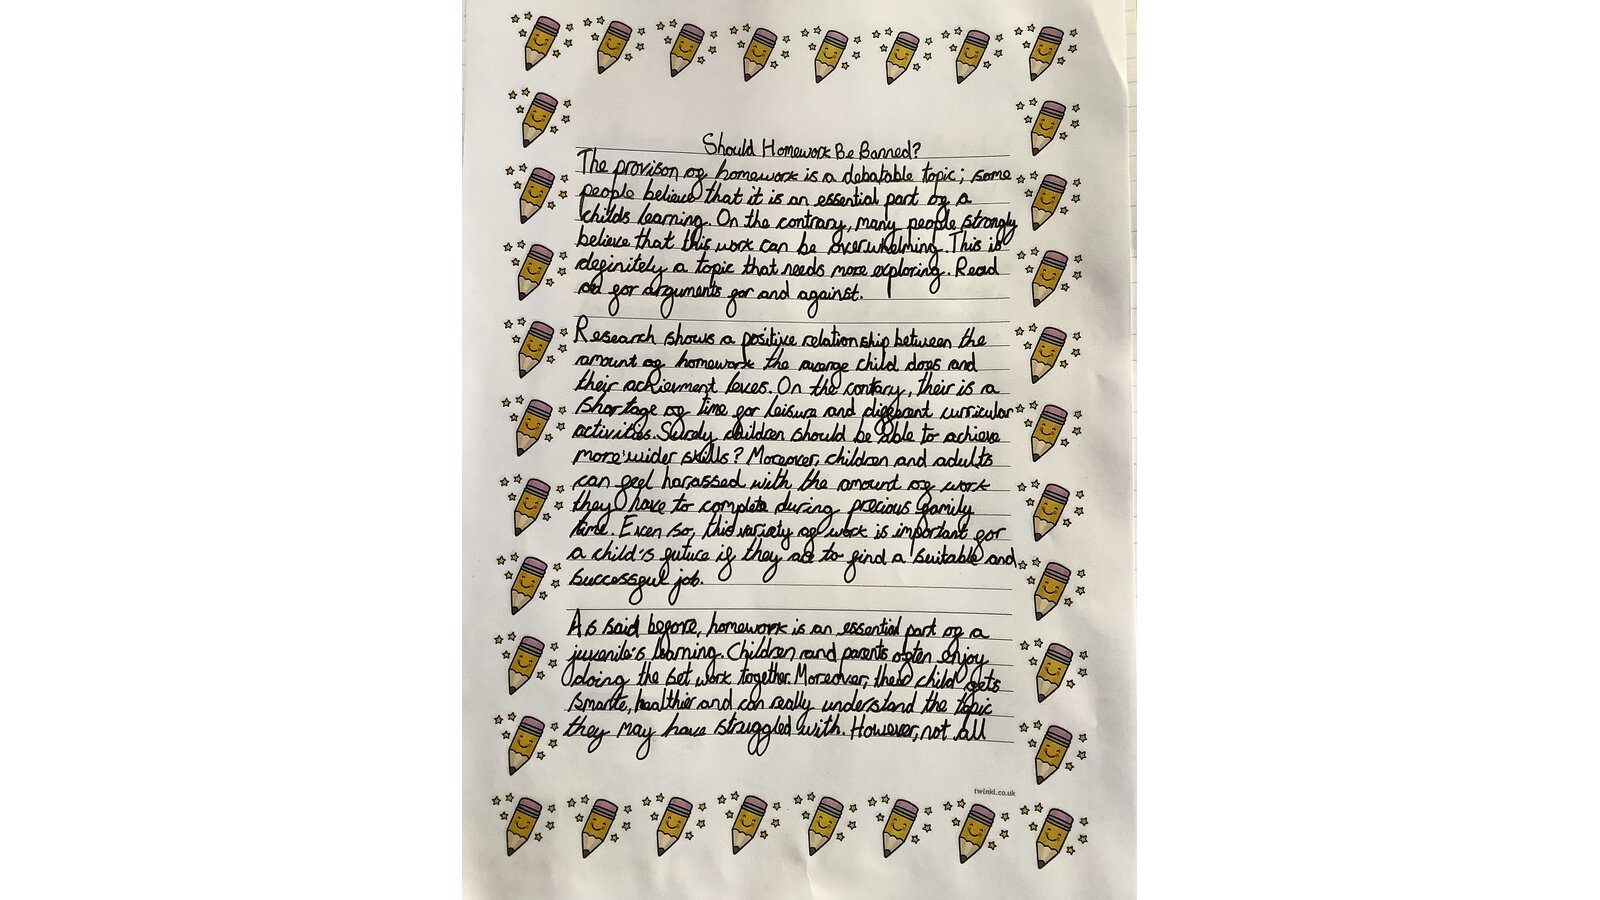 Should Homework Be Banned?
The provison of homework is a debatable topic; some
people believe that it is an essential part of a
childs learning. On the contrary, many people strongly
believe that this work can be overwhelming. This is
definitely a topic that needs more exploring. Read
on for arguments for and against.
Research shows a positive relationship between the
amount of homework the average child does and
their achievment leves. On the contary, their is a
shortage of time for leisure and different curricular
activities. Surely children should be able to achieve
more wider skills? Moreover, children and adults
can feel harassed with the amount of work
they have to complete during precious family
time. Even so, this variety of work is important for
a child's future if they are to find a suitable and
successful job.
As said before, homework is an essential part of a
juvenile's learning. Children and parents often enjoy
doing the set work together. Moreover, the child gets
smarter, healthier and can really understand the topic
they may have struggled with. However, not all
twinkl.co.uk